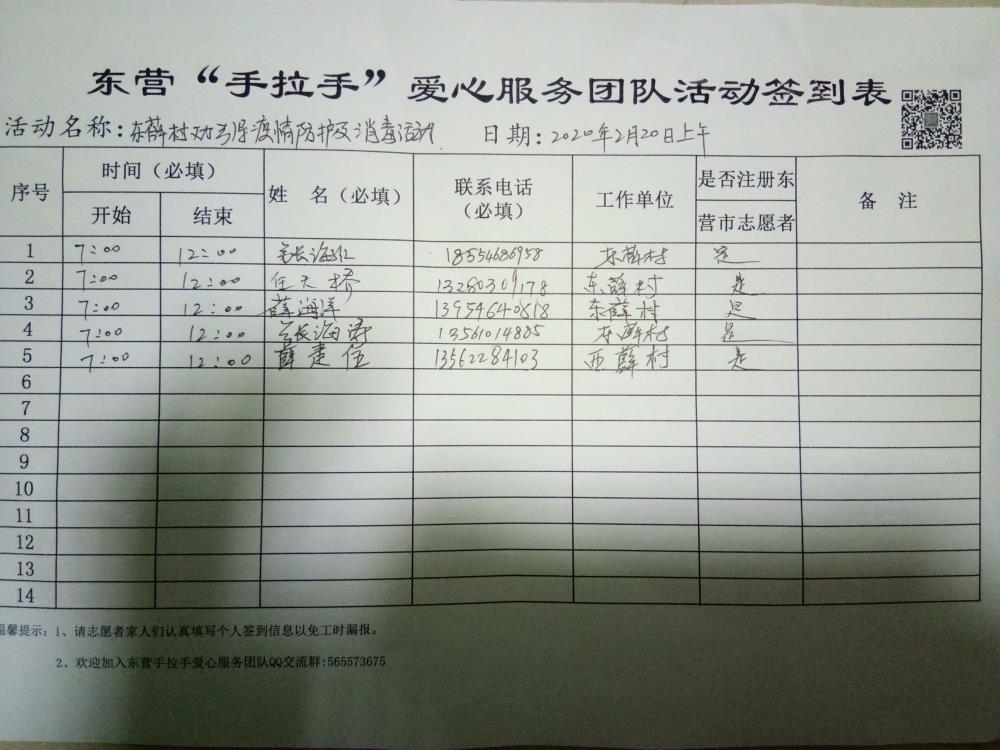 东营“手拉手”爱心服务团队活动签到表
活动名称：东薛村 疫情防护及消毒活动 日期：2020年2月20日上午
序号 时间（必填） 姓 名（必填） 联系电话（必填） 工作单位 是否注册东营市志愿者 备 注
开始 结束
1 7:00 12:00 18554686958 东薛村 是
2 7:00 12:00 任天桥 13280309178 东薛村 是
3 7:00 12:00 薛海洋 13954640818 东薛村 是
4 7:00 12:00 13561014885 东薛村 是
5 7:00 12:00 薛建伍 13562284103 西薛村 是
6
7
8
9
10
11
12
13
14
温馨提示：1、请志愿者家人们认真填写个人签到信息以免工时漏报。
2、欢迎加入东营手拉手爱心服务团队QQ交流群:565573675